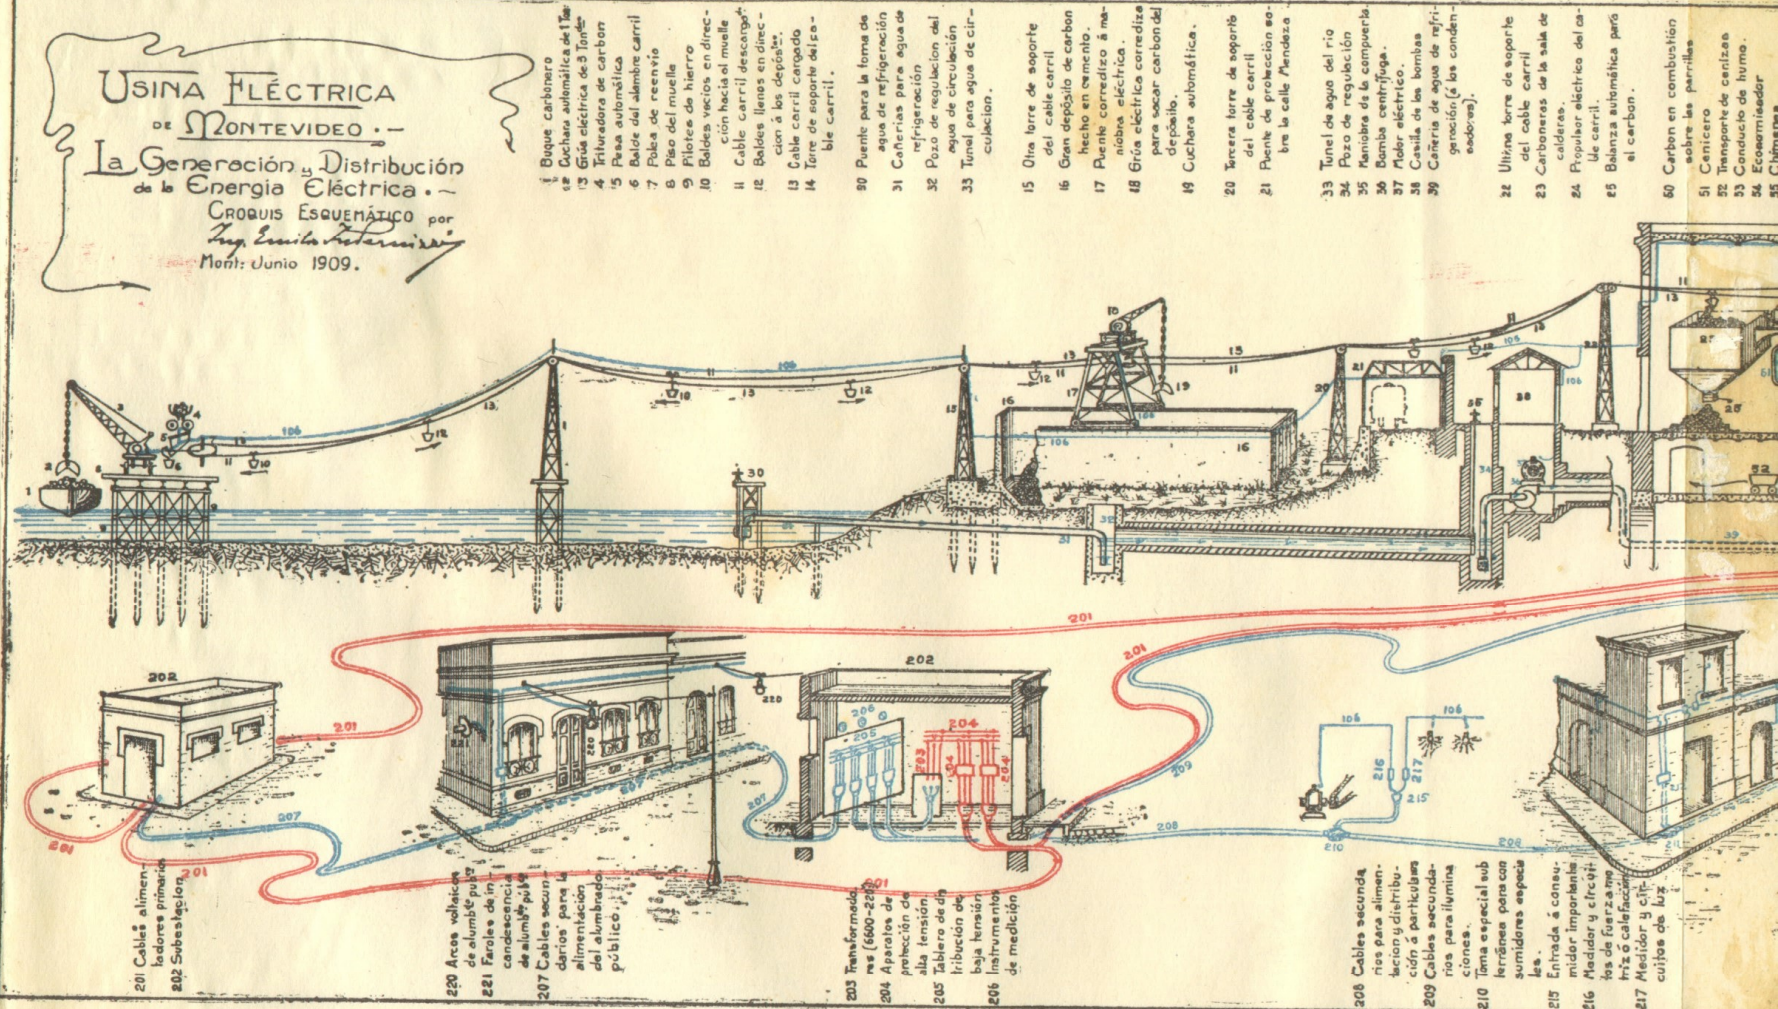 USINA ELÉCTRICA
DE MONTEVIDEO.-
La Generación y Distribución
de la Energia Eléctrica.-
CROQUIS ESQUEMÁTICO por
Mont: Junio 1909.
1 Buque carbonero
2 Cuchara automática de 1 Ton
3 Grúa eléctrica de 3 Tondas
4 Trituradora de carbon
5 Pesa automática
6 Balde del alambre carril
7 Polea de reenvio
8 Piso del muelle
9 Pilotes de hierro
10 Baldes vacios en direc-
ción hacia el muelle
11 Cable carril descargado
12 Baldes llenos en direc-
cion á los depósitos.
13 Cable carril cargado
14 Torre de soporte del ca-
ble carril.
30 Puente para la toma de
agua de refrigeración
31 Cañerias para agua de
refrigeración
32 Pozo de regulacion del
agua de circulación
33 Tunel para agua de cir-
culacion.
15 Otra torre de soporte
del cable carril
16 Gran depósito de carbon
hecho en cemento.
17 Puente corredizo á ma-
niobra eléctrica.
18 Grúa eléctrica corrediza
para sacar carbon del
depósito.
19 Cuchara automática.
20 Tercera torre de soporte
del cable carril
21 Puente de protección so-
bre la calle Mendoza
33 Tunel de agua del rio
34 Pozo de regulación
35 Maniobra de la compuerta.
36 Bomba centrifuga.
37 Motor eléctrico.
38 Casilla de las bombas
39 Cañeria de agua de refri-
geración (á los conden-
sadores).
22 Ultima torre de soporte
del cable carril
23 Carboneras de la sala de
calderas.
24 Propulsor eléctrico del ca-
ble carril.
25 Balanza automática para
el carbon.
50 Carbon en combustión
sobre las parrillas
51 Cenicero
52 Transporte de cenizas
53 Conducto de humo.
54 Economisador
55 Chimenea
201 Cables alimen-
tadores primarios
202 Subestacion
220 Arcos voltaicos
de alumb.to pub.co
221 Faroles de in-
candescencia
de alumb.to púb.co
207 Cables secun-
darios para la
alimentación
del alumbrado
público.
203 Transformado-
res (6600-220)
204 Aparatos de
protección de
alta tensión.
205 Tablero de dis
tribución de
baja tensión
206 Instrumentos
de medición
208 Cables secunda
rios para alimen-
tacion y distribu-
ción á particulares
209 Cables secunda-
rios para ilumina
ciones.
210 Toma especial sub
terránea para con
sumidores especia
les.
215 Entrada á consu-
midor importante
216 Medidor y circuit
tos de fuerza mo
triz ó calefacción
217 Medidor y cir-
cuitos de luz